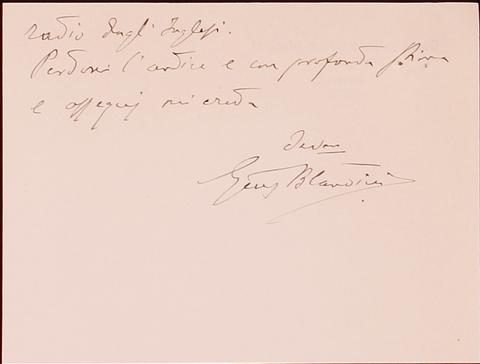 radio dagli Inglesi.
Perdoni l'ardire e con profonda stima
e ossequi mi creda
Blandini